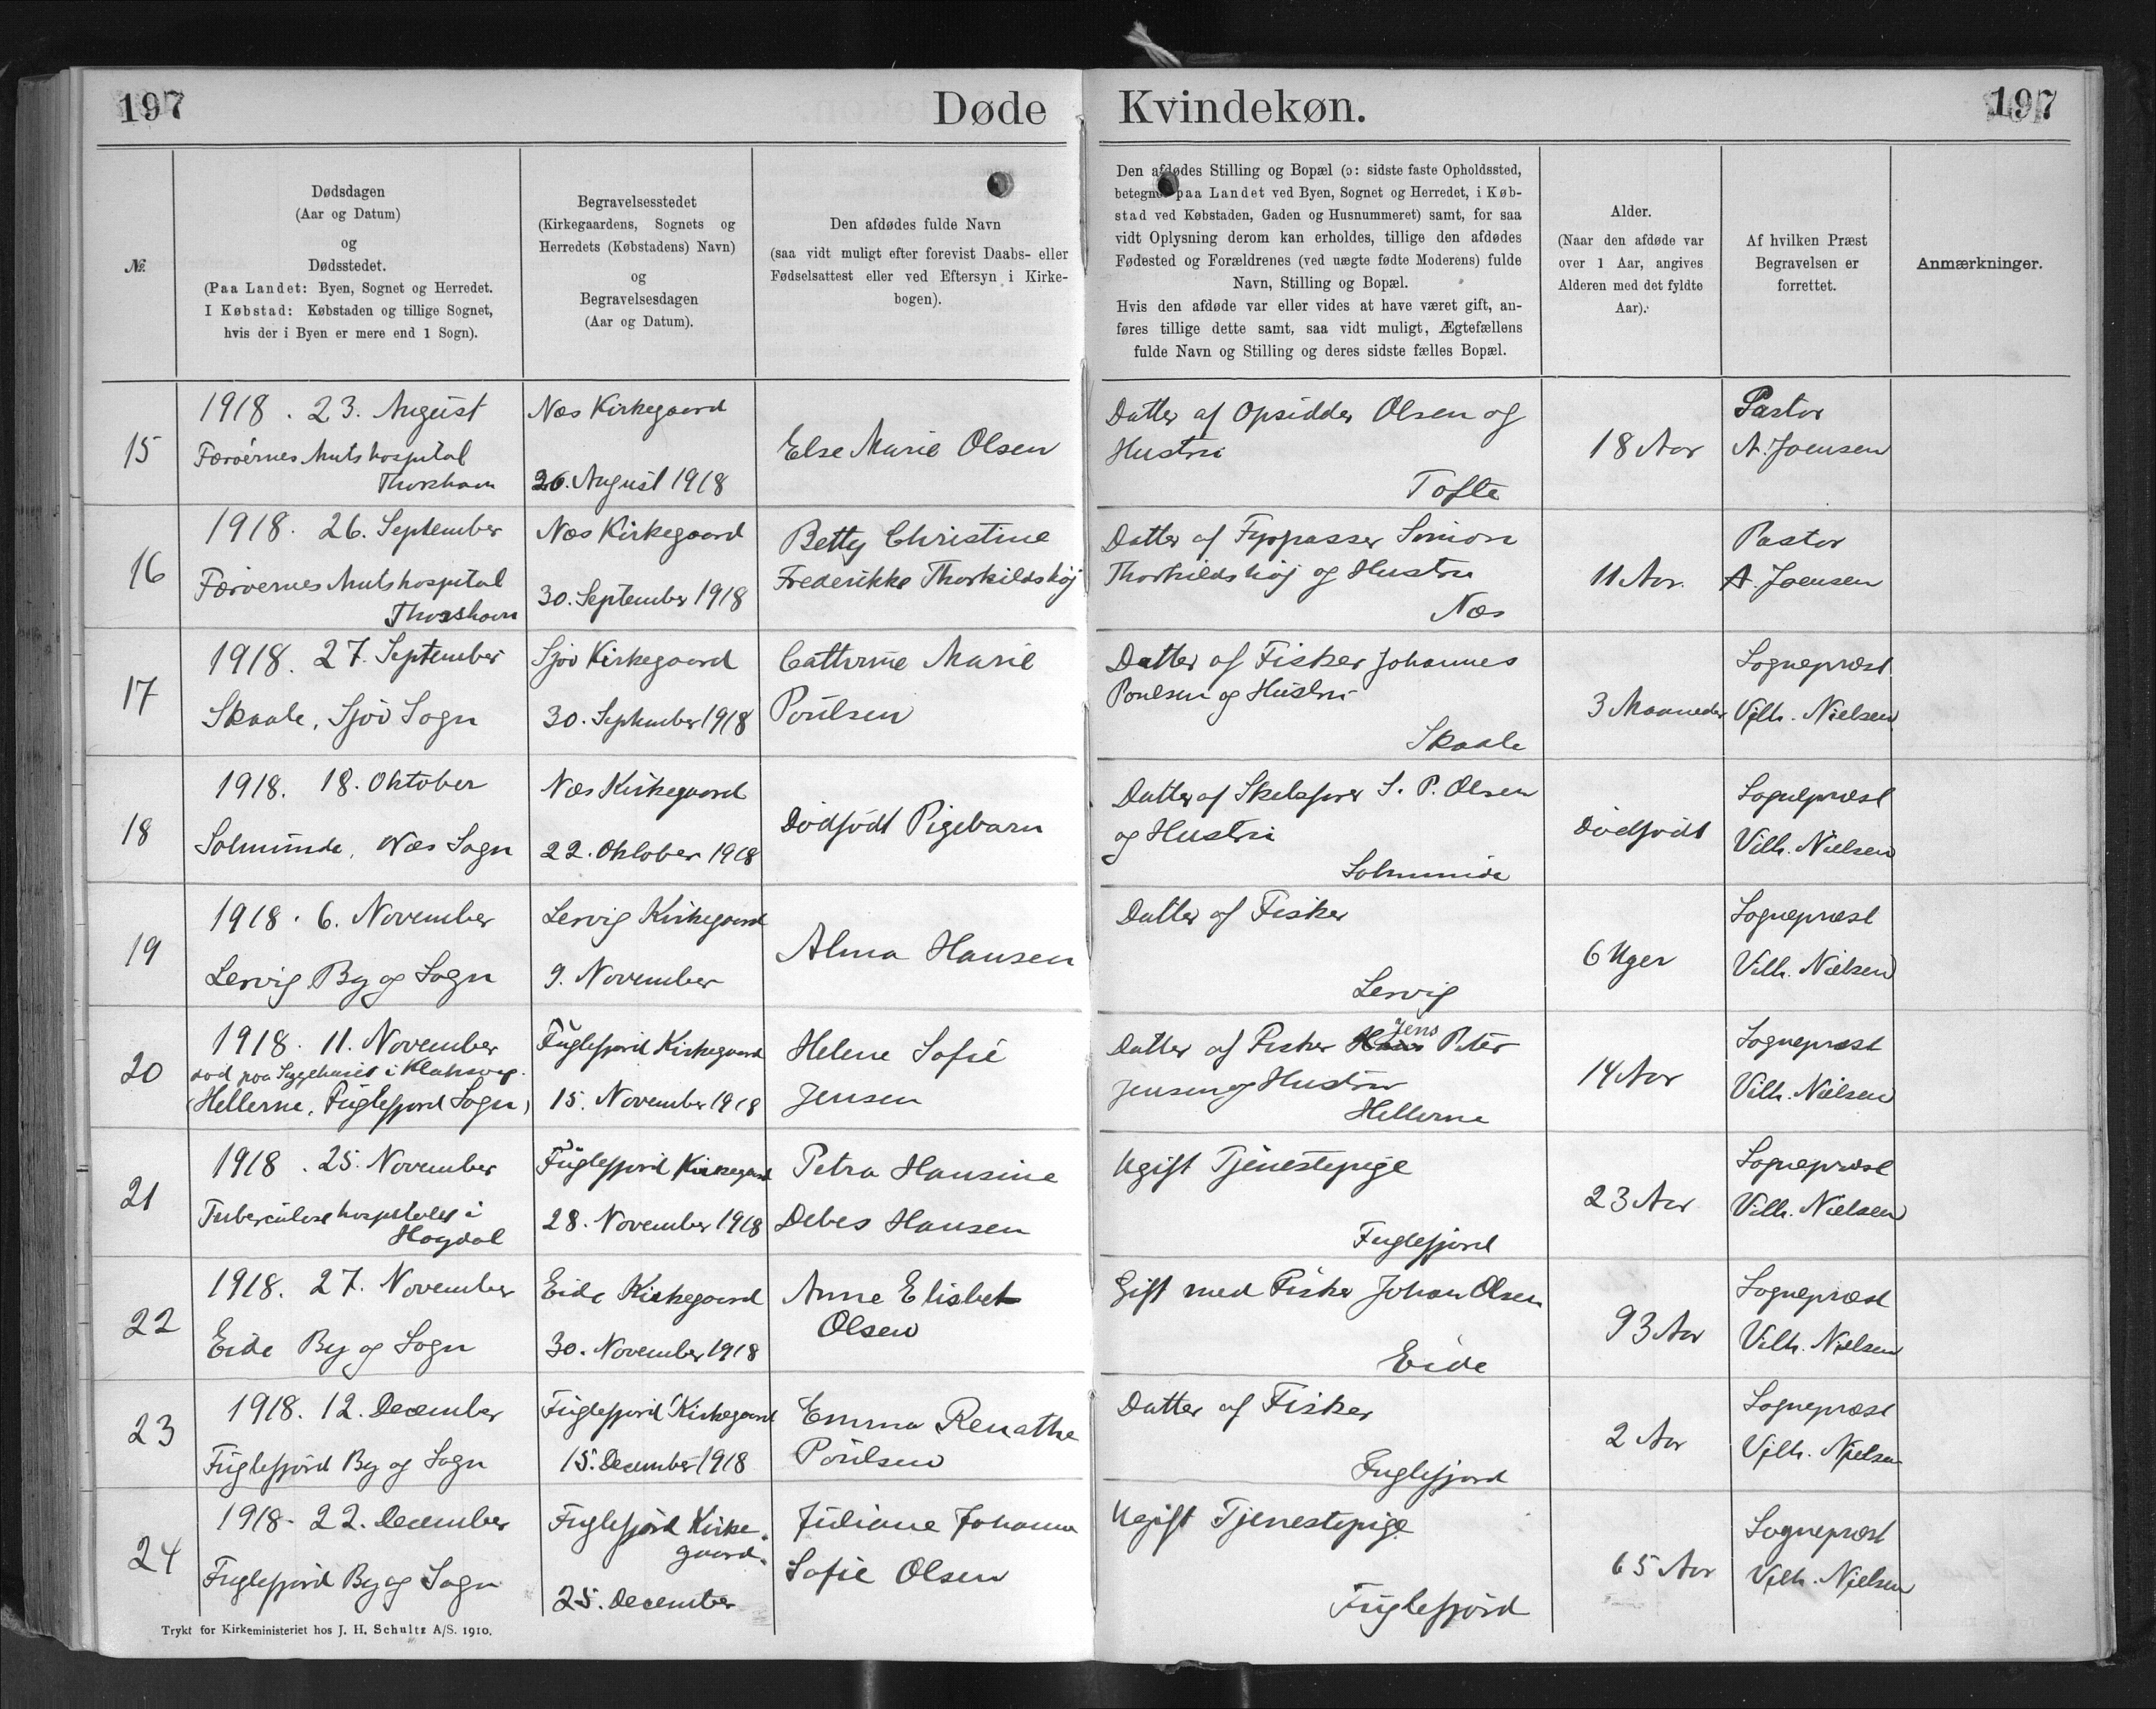 197
Døde
Kvindekøn.
197
№
Dødsdagen
(Aar og Datum)
og
Dødsstedet.
(Paa Landet: Byen, Sognet og Herredet.
I Købstad: Købstaden og tillige Sognet,
hvis der i Byen er mere end 1 Sogn).
Begravelsesstedet
(Kirkegaardens, Sognets og
Herredets (Købstadens) Navn)
og
Begravelsesdagen
(Aar og Datum).
Den afdødes fulde Navn
(saa vidt muligt efter forevist Daabs- eller
Fødselsattest eller ved Eftersyn i Kirke-
bogen).
Den afdødes Stilling og Bopæl (ɔ: sidste faste Opholdssted,
betegnet paa Landet ved Byen, Sognet og Herredet, i Køb-
stad ved Købstaden, Gaden og Husnummeret) samt, for saa
vidt Oplysning derom kan erholdes, tillige den afdødes
Fødested og Forældrenes (ved uægte fødte Moderens) fulde
Navn, Stilling og Bopæl.
Hvis den afdøde var eller vides at have været gift, an-
føres tillige dette samt, saa vidt muligt, Ægtefællens
fulde Navn og Stilling og deres sidste fælles Bopæl.
Alder.
(Naar den afdøde var
over 1 Aar, angives
Alderen med det fyldte
Aar).
Af hvilken Præst
Begravelsen er
forrettet.
Anmærkninger.
15
1918. 23. August
Færøernes Amtshospital
Thorshavn
Næs Kirkegaard
26. August 1918
Else Marie Olsen
Datter af Opsidder Olsen og
Hustru
Tofte
18 Aar
Pastor
A. Joensen
16
1918. 26. September
Færøernes Amtshospital
Thorshavn
Næs Kirkegaard
30. September 1918
Betty Christine
Frederikke Thorkildshøj
Datter af Fyrpasser Simon
Thorkildshøj og Hustru
Næs
11 Aar.
Pastor
A. Joensen
17
1918. 27. September
Skaale, Sjov Sogn
Sjov Kirkegaard
30. September 1918
Cathrine Marie
Poulsen
Datter af Fisker Johannes
Poulsen og Hustru
Skaale
3 Maaneder
Sognepræst
Vilh. Nielsen
18
1918. 18. Oktober
Solmunde, Næs Sogn
Næs Kirkegaard
22. Oktober 1918
Dødfødt Pigebarn
Datter af S. P. Olsen
og Hustru
Solmunde
Dødfødt
Sognepræst
Vilh. Nielsen
19
1918. 6. November
Lervig By og Sogn
Lervig Kirkegaard
9. November
Alma Hansen
Datter af Fisker
Lervig
6 Uger
Sognepræst
Vilh. Nielsen
20
1918. 11. November
død paa Sygehuset i Klaksvig.
(Hellerne, Fuglefjord Sogn)
Fuglefjord Kirkegaard
15. November 1918
Helene Sofie
Jensen
Jens
Datter af Fisker Hans Peter
Jensen og Hustru
Hellerne
14 Aar
Sognepræst
Vilh. Nielsen
21
1918. 25. November
Tuberculosehospitalet i
Hoydal
Fuglefjord Kirkegaard
28. November 1918
Petra Hansine
Debes Hansen
Ugift Tjenestepige
Fuglefjord
23 Aar
Sognepræst
Vilh. Nielsen
22
1918. 27. November
Eide By og Sogn
Eide Kirkegaard
30. November 1918
Anne Elisbet
Olsen
Gift med Fisker Johan Olsen
Eide
93 Aar
Sognepræst
Vilh. Nielsen
23
1918. 12. December
Fuglefjord By og Sogn
Fuglefjord Kirkegaard
15. December 1918
Emma Renathe
Poulsen
Datter af Fisker
Fuglefjord
2 Aar
Sognepræst
Vilh. Nielsen
24
1918. 22. December
Fuglefjord By og Sogn
Fuglefjord Kirke-
gaard.
25. December
Juliane Johanna
Sofie Olsen
Ugift Tjenestepige
Fuglefjord
65 Aar
Sognepræst
Vilh. Nielsen
Trykt for Kirkeministeriet hos J. H. Schultz A/S. 1910.